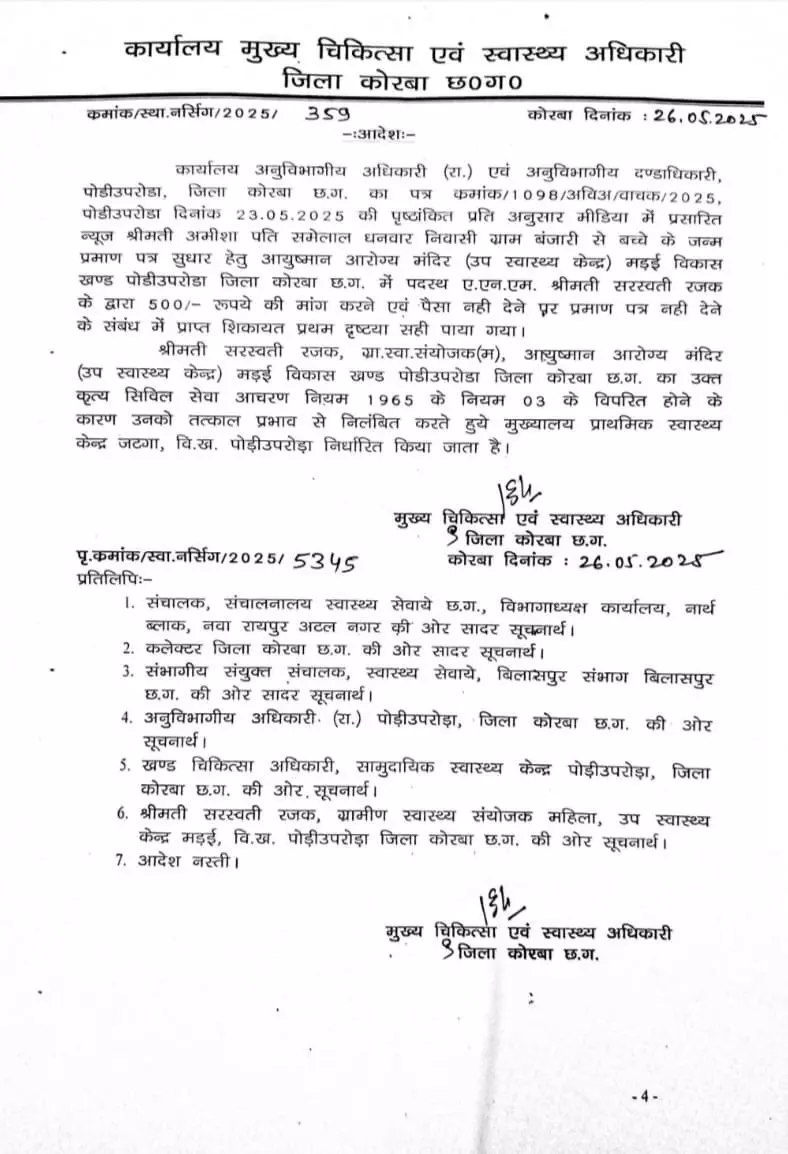 कार्यालय मुख्य चिकित्सा एवं स्वास्थ्य अधिकारी
जिला कोरबा छ0ग0
कमांक/स्था.नर्सिग/2025/ 359 कोरबा दिनांक : 26.05.2025
-:आदेश:-
कार्यालय अनुविभागीय अधिकारी (रा.) एवं अनुविभागीय दण्डाधिकारी,
पोडीउपरोडा, जिला कोरबा छ.ग. का पत्र कमांक/1098/अविअ/वाचक/2025,
पोडीउपरोडा दिनांक 23.05.2025 की पृष्ठांकित प्रति अनुसार मीडिया में प्रसारित
न्यूज श्रीमती अमीशा पति समेलाल धनवार निवासी ग्राम बंजारी से बच्चे के जन्म
प्रमाण पत्र सुधार हेतु आयुष्मान आरोग्य मंदिर (उप स्वास्थ्य केन्द्र) मड़ई विकास
खण्ड पोडीउपरोडा जिला कोरबा छ.ग. में पदस्थ ए.एन.एम. श्रीमती सरस्वती रजक
के द्वारा 500/- रूपये की मांग करने एवं पैसा नही देने पर प्रमाण पत्र नही देने
के संबंध में प्राप्त शिकायत प्रथम दृष्टया सही पाया गया।
श्रीमती सरस्वती रजक, ग्रा.स्वा.संयोजक(म), आयुष्मान आरोग्य मंदिर
(उप स्वास्थ्य केन्द्र) मड़ई विकास खण्ड पोडीउपरोडा जिला कोरबा छ.ग. का उक्त
कृत्य सिविल सेवा आचरण नियम 1965 के नियम 03 के विपरित होने के
कारण उनको तत्काल प्रभाव से निलंबित करते हुये मुख्यालय प्राथमिक स्वास्थ्य
केन्द्र जटगा, वि.ख. पोड़ीउपरोड़ा निर्धारित किया जाता है।
मुख्य चिकित्सा एवं स्वास्थ्य अधिकारी
जिला कोरबा छ.ग.
पृ.कमांक/स्वा.नर्सिग/2025/ 5345 कोरबा दिनांक : 26.05.2025
प्रतिलिपिः-
1. संचालक, संचालनालय स्वास्थ्य सेवाये छ.ग., विभागाध्यक्ष कार्यालय, नार्थ
ब्लाक, नवा रायपुर अटल नगर की ओर सादर सूचनार्थ।
2. कलेक्टर जिला कोरबा छ.ग. की ओर सादर सूचनार्थ।
3. संभागीय संयुक्त संचालक, स्वास्थ्य सेवाये, बिलासपुर संभाग बिलासपुर
छ.ग. की ओर सादर सूचनार्थ।
4. अनुविभागीय अधिकारी (रा.) पोड़ीउपरोड़ा, जिला कोरबा छ.ग. की ओर
सूचनार्थ।
5. खण्ड चिकित्सा अधिकारी, सामुदायिक स्वास्थ्य केन्द्र पोड़ीउपरोड़ा, जिला
कोरबा छ.ग. की ओर सूचनार्थ।
6. श्रीमती सरस्वती रजक, ग्रामीण स्वास्थ्य संयोजक महिला, उप स्वास्थ्य
केन्द्र मड़ई, वि.ख. पोड़ीउपरोड़ा जिला कोरबा छ.ग. की ओर सूचनार्थ।
7. आदेश नस्ती।
मुख्य चिकित्सा एवं स्वास्थ्य अधिकारी
जिला कोरबा छ.ग.
-4-